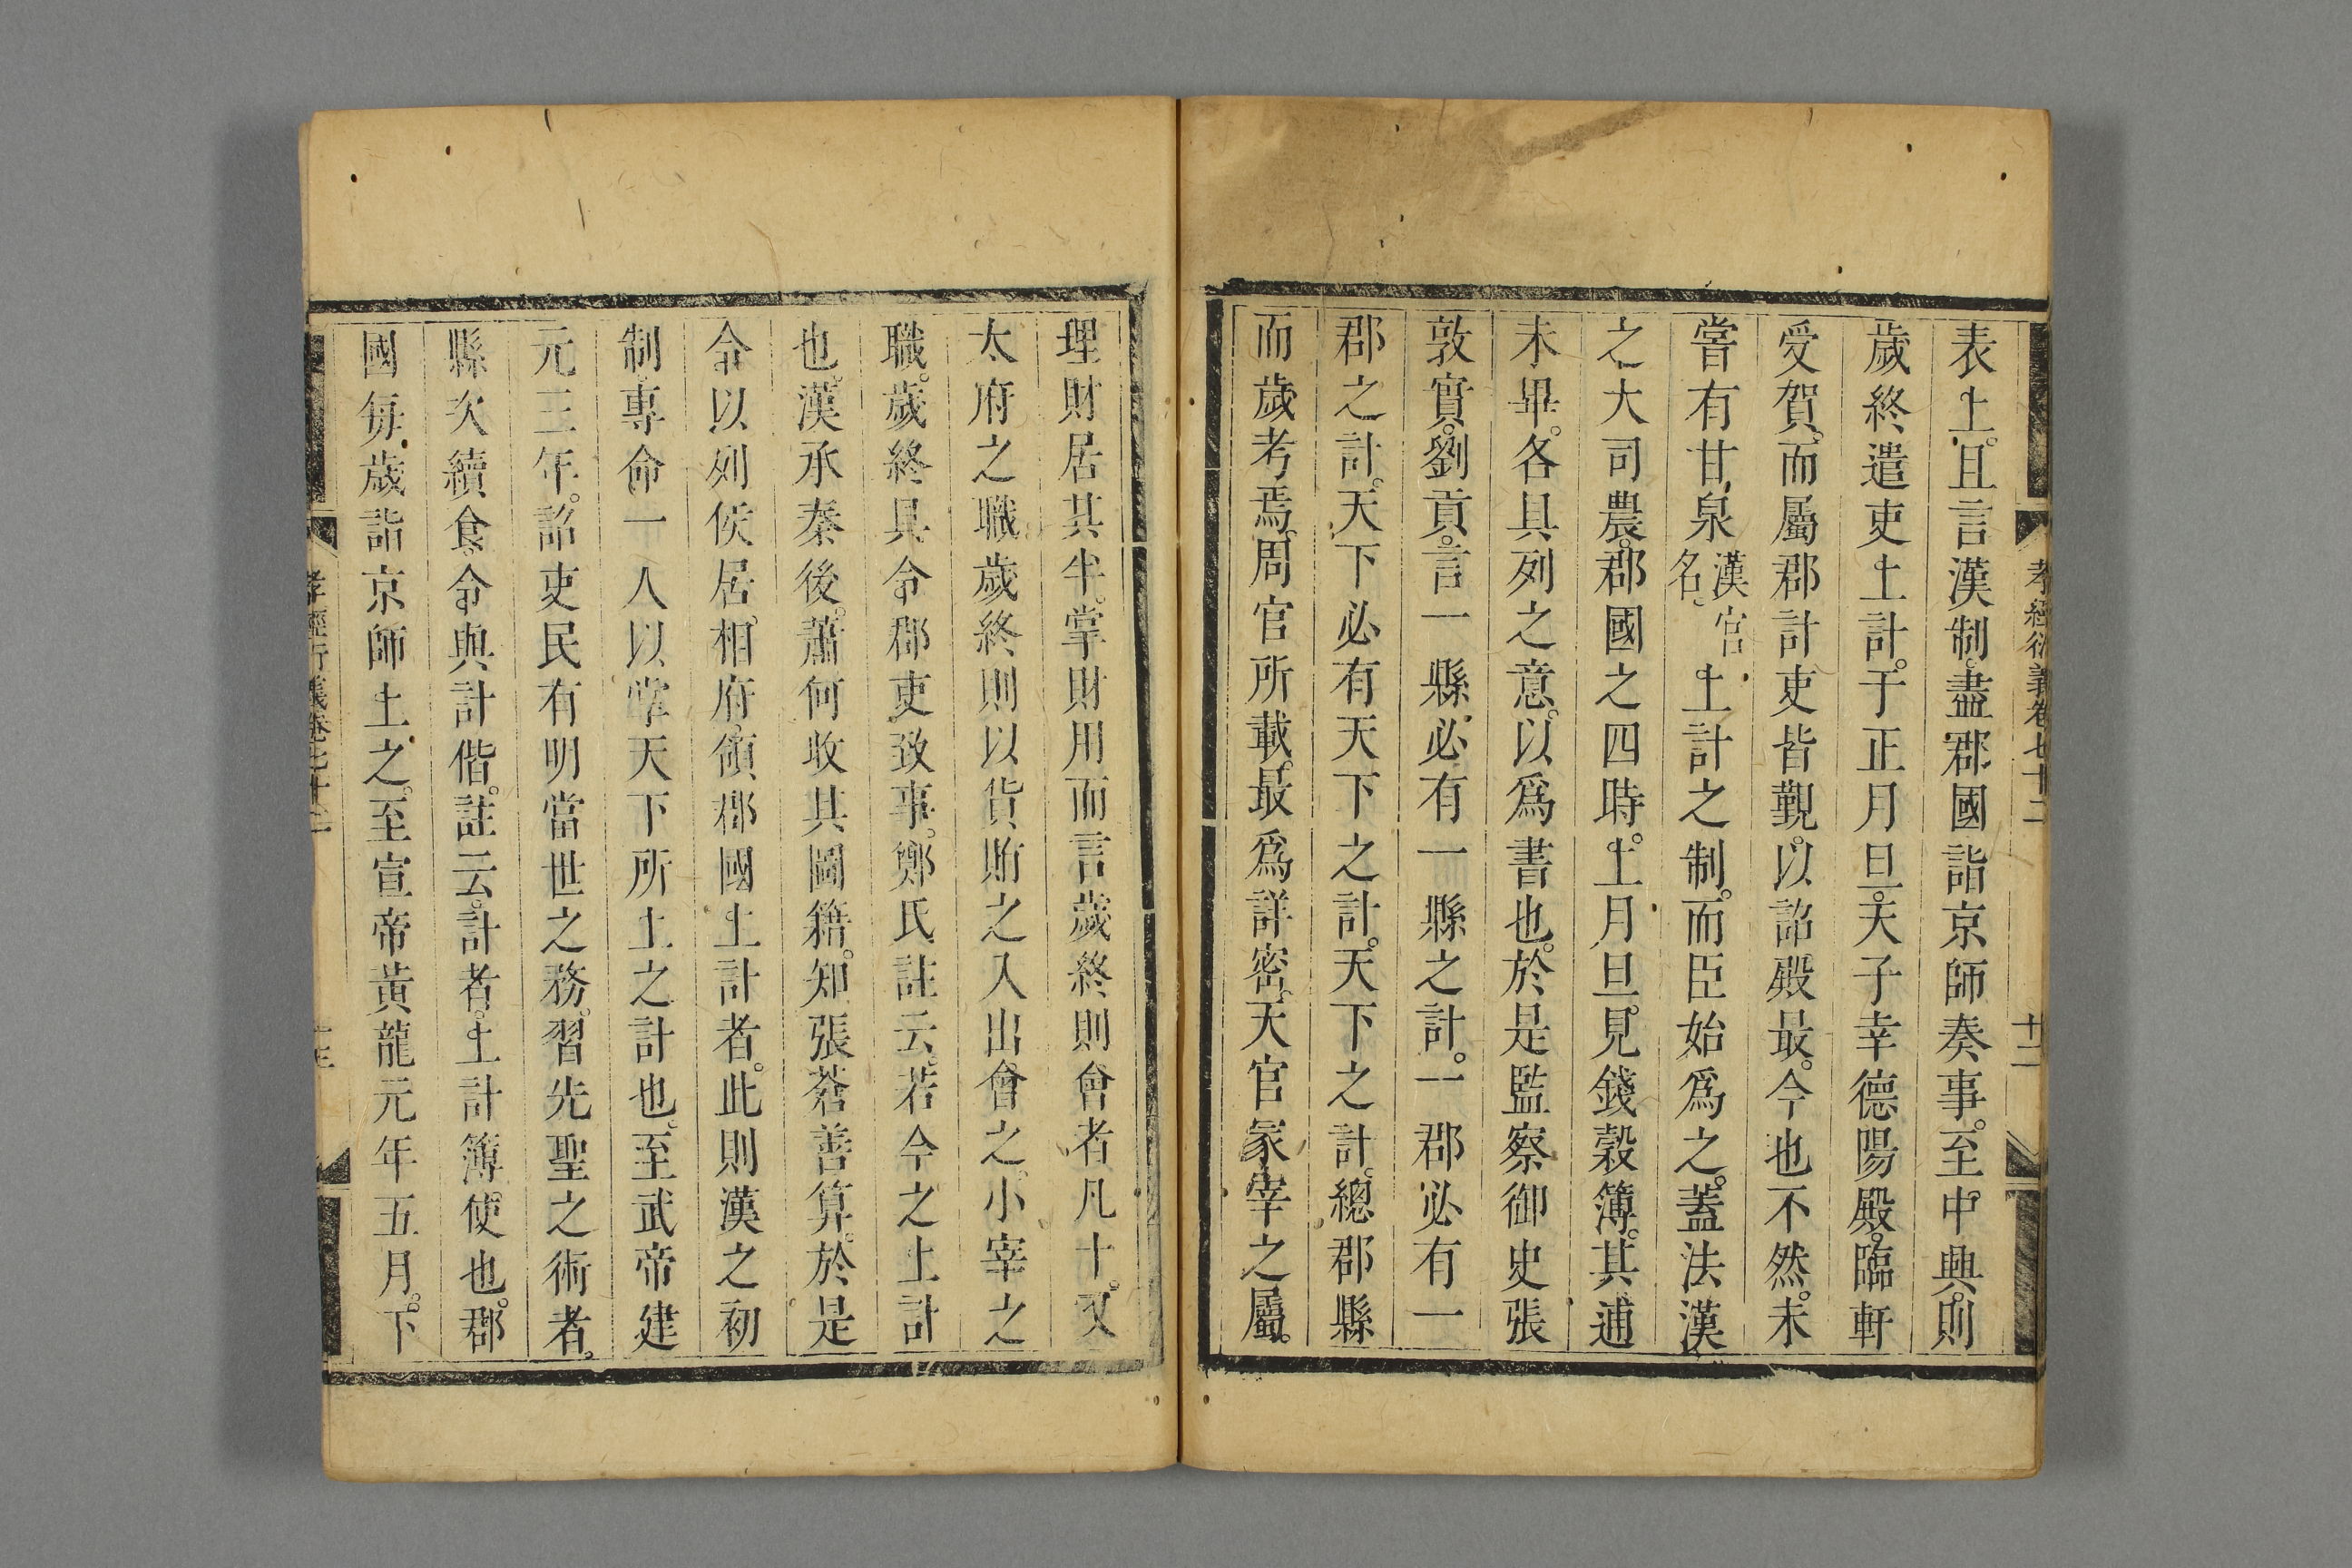 孝經衍義卷七十二
十二
表上。且言漢制盡郡國詣京師奏事。至中興。則
歲終遣吏上計。于正月旦。天子幸德陽殿。臨軒
受賀。而屬郡計吏皆觀。以詔殿最。今也不然。未
嘗有甘泉漢官名。上計之制。而臣始爲之。蓋法漢
之大司農。郡國之四時。上月旦。見錢穀簿。其逋
未畢。各具列之意。以爲書也。於是監察御史張
敦實。劉貢。言一縣必有一縣之計。一郡必有一
郡之計。天下必有天下之計。天下之計。總郡縣
而歲考焉。周官所載。最爲詳密。天官冢宰之屬。
理財居其半。掌財用而言歲終則會者凡十。又
太府之職歲終則以貨賄之入出會之。小宰之
職。歲終具令郡吏致事。鄭氏註云。若今之上計
也。漢承秦後。蕭何收其圖籍。知張蒼善算。於是
令以列侯居相府。領郡國上計者。此則漢之初
制。專命一人以掌天下所上之計也。至武帝建
元三年。詔吏民有明當世之務。習先聖之術者。
縣次續食。令與計偕。註云。計者。上計簿。使也。郡
國每歲詣京師上之。至宣帝黃龍元年五月。下
孝經衍義卷七十二
十三